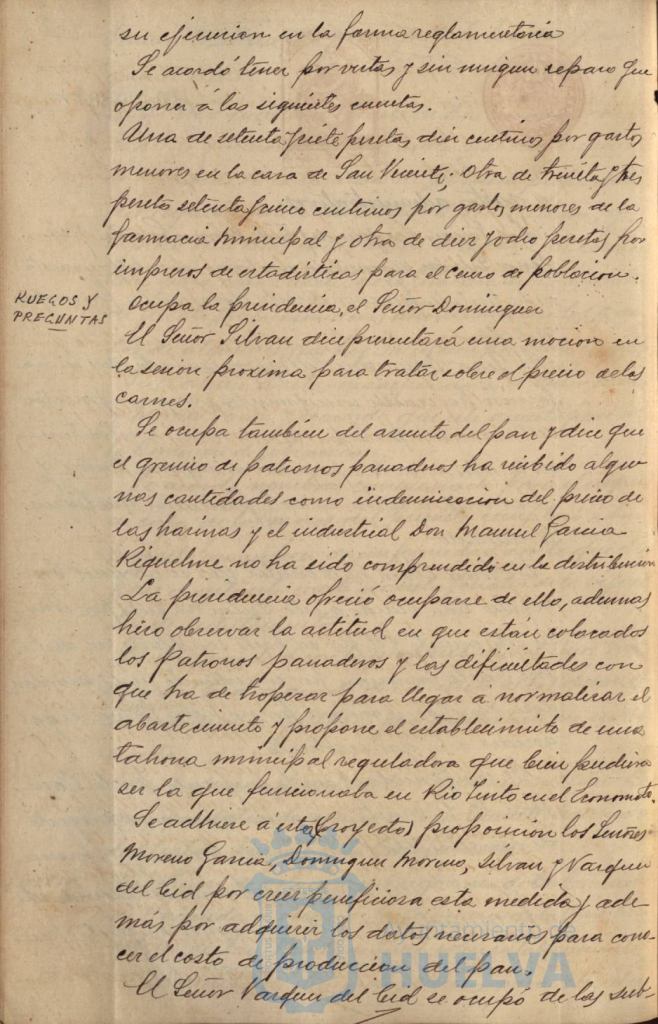 su ejecucion en la forma reglamentaria
Se acordó tener por vistas y sin ningun reparo que
oponer á las siguientes cuentas.
Una de setenta y siete pesetas diez centimos por gastos
menores en la casa de San Vicente; otra de treinta y tres
pesetas setenta y cinco centimos por gastos menores de la
farmacia municipal y otra de diez y ocho pesetas por
impresos de estadisticas para el censo de poblacion.
RUEGOS Y
PREGUNTAS
Ocupa la presidencia, el Señor Dominguez
El Señor Silvan dice presentará una mocion en
la sesion proxima para tratar sobre el precio de las
carnes.
Se ocupa tambien del asunto del pan y dice que
el gremio de patronos panaderos ha recibido algu-
nas cantidades como indemnizacion del precio de
las harinas y el industrial Don Manuel Garcia
Riquelme no ha sido comprendido en la distribucion
La presidencia ofreció ocuparse de ello, ademas
hizo observar la actitud en que están colocados
los Patronos panaderos y las dificultades con
que ha de tropezar para llegar á normalizar el
abastecimiento y propone el establecimiento de una
tahona municipal reguladora que bien pudiera
ser la que funcionaba en Rio Tinto en el Economato.
Se adhiere á esta (proyecto) proposicion los Señores
Moreno Garcia, Dominguez Moreno, Silvan y Vazquez
del Cid por creer beneficiosa esta medida y ade-
más por adquirir los datos necesarios para cono-
cer el costo de produccion del pan.
El Señor Vazquez del Cid se ocupó de las sub-
Ayuntamiento de
HUELVA